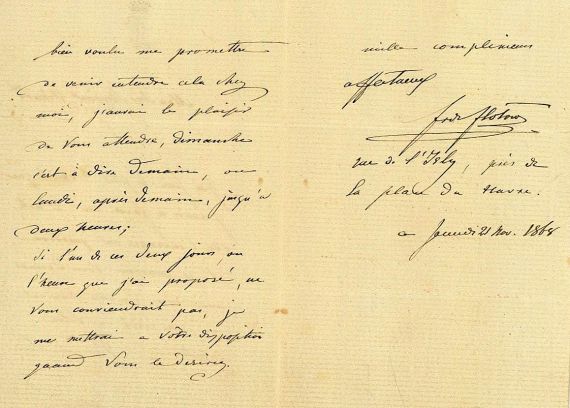 bien voulu me promettre
de venir entendre cela chez
moi, j'aurai le plaisir
de vous attendre, dimanche
c'est à dire demain, ou
lundi, après demain, jusqu'à
deux heures;
si l'un de ces deux jours, ou
l'heure que j'ai proposé, ne
vous conviendrait pas, je
me mettrai a votre disposition
quand vous le désirez.
mille complimens
affectueux
fr de flotow
rue de l'Isly, près de
la place du Havre.
a 21 nov. 1868